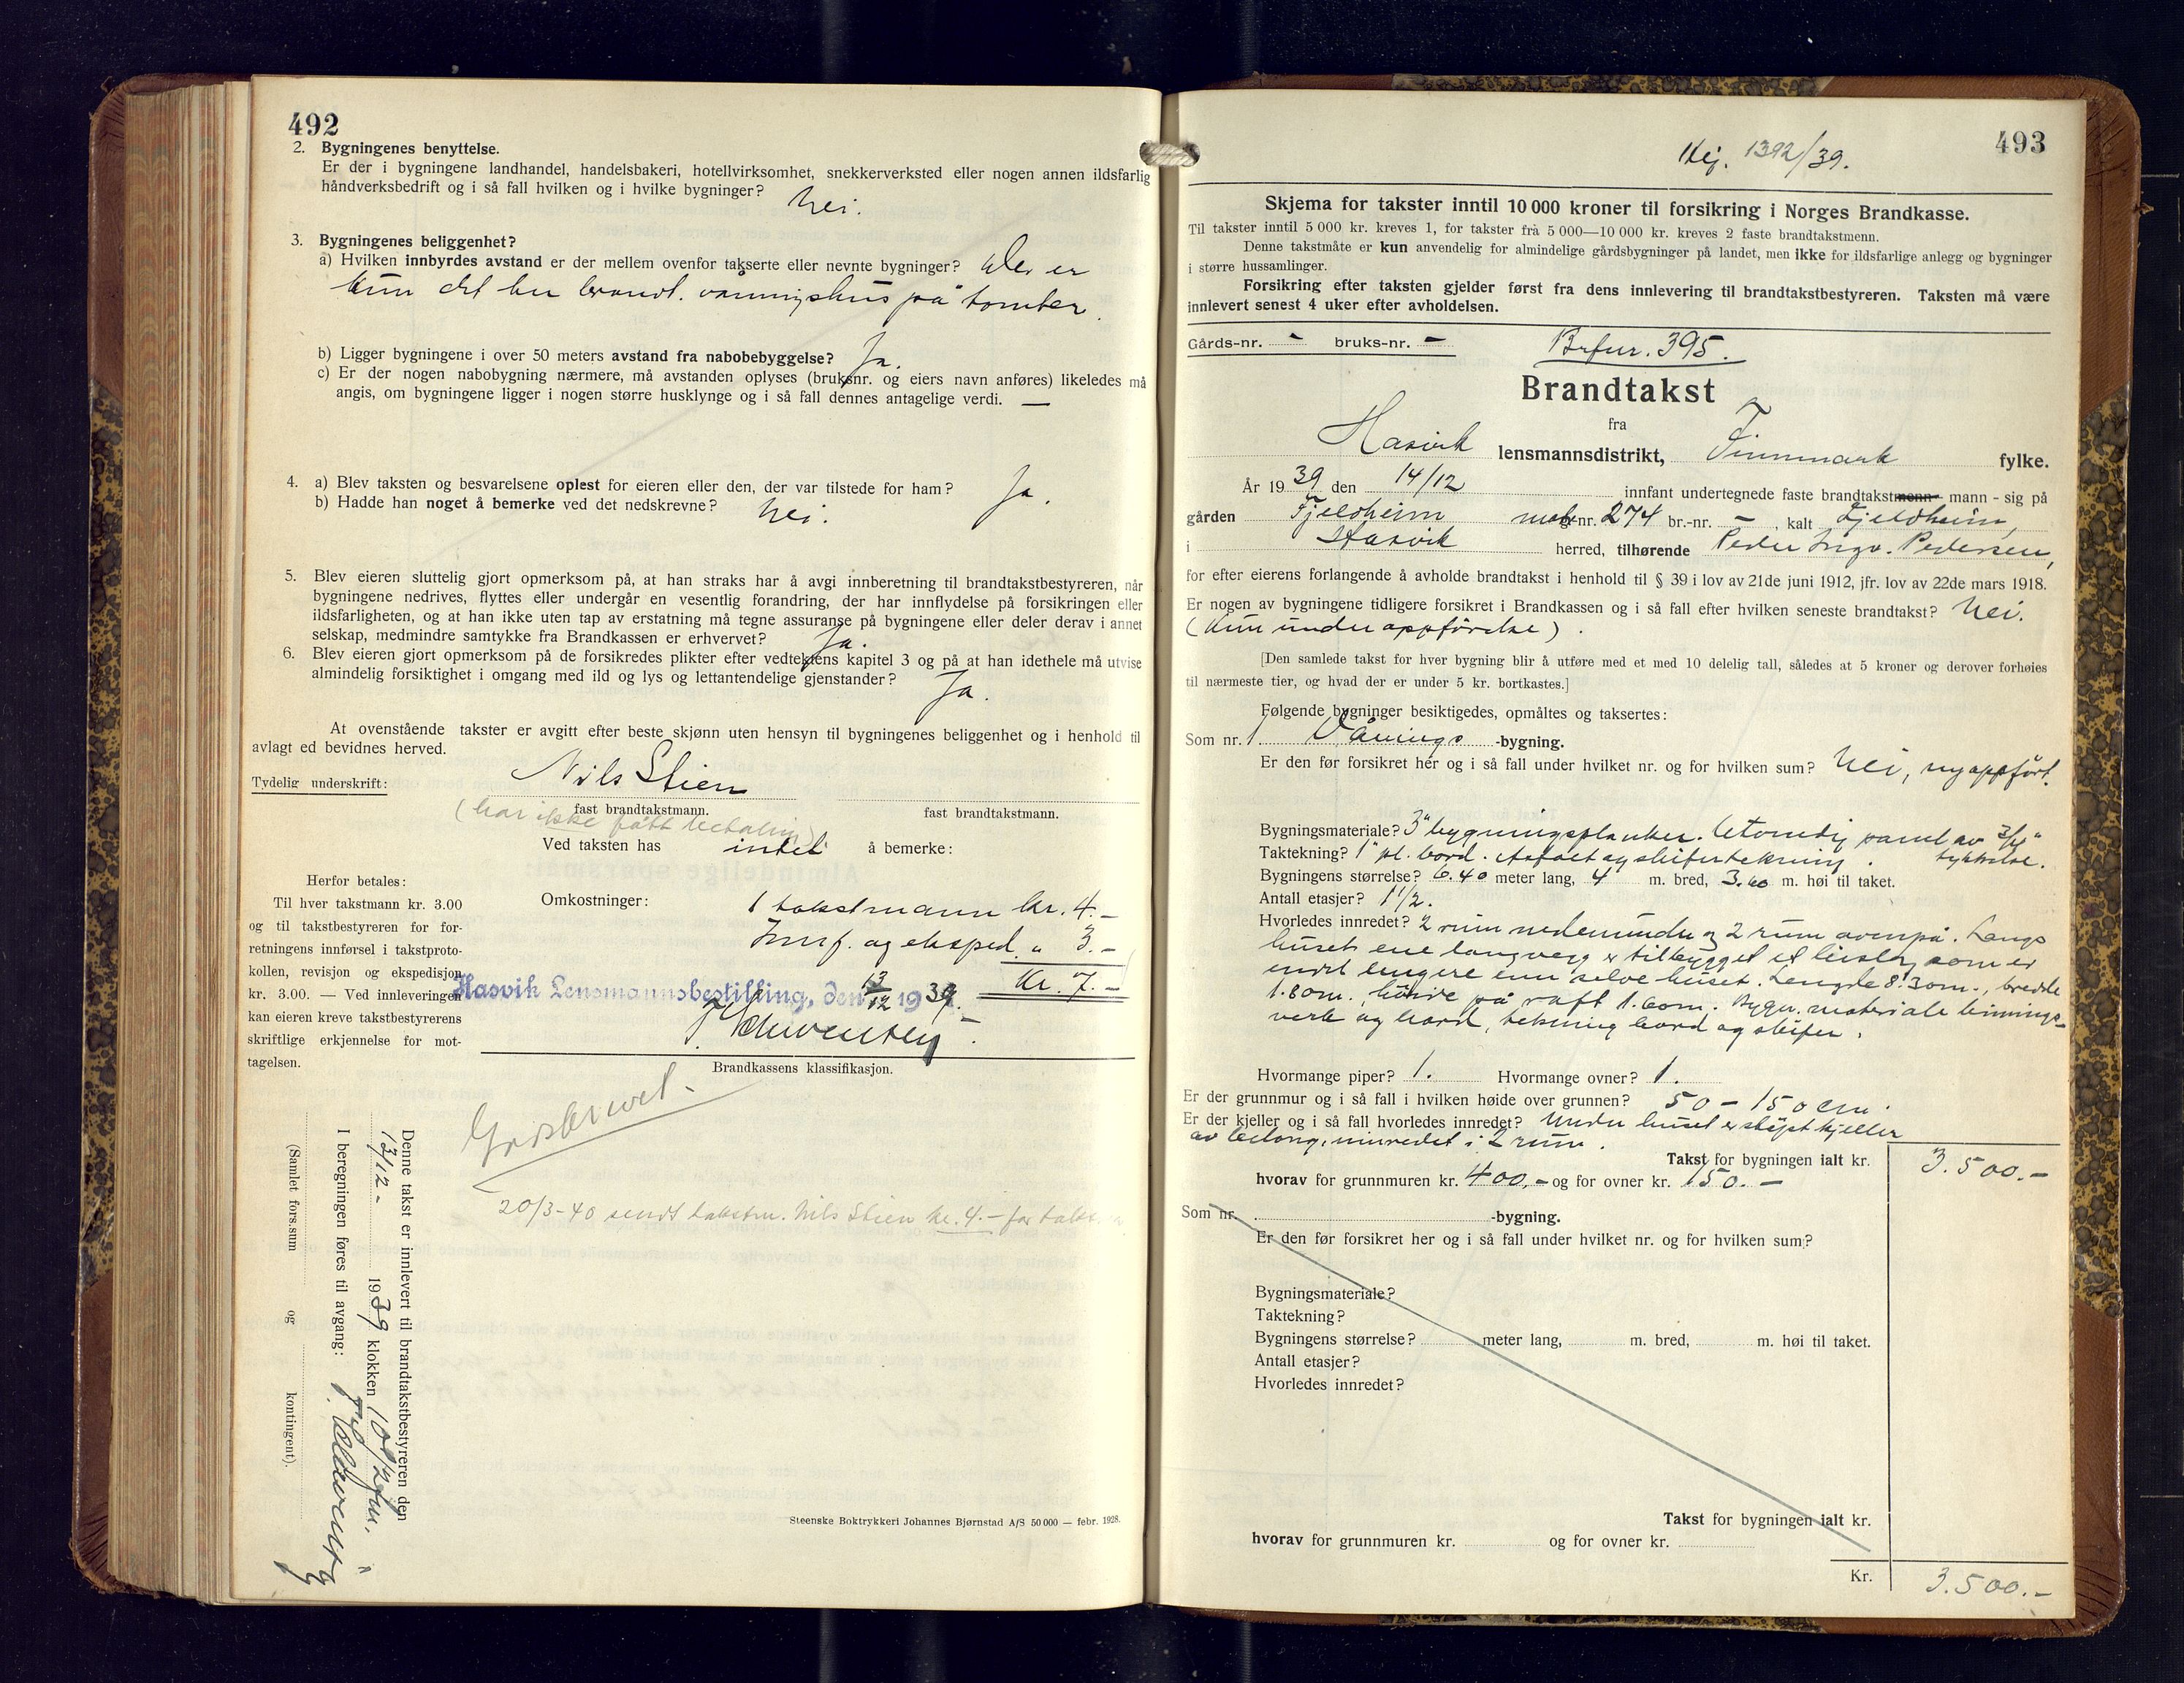 492
2. Bygningenes benyttelse.
Er der i bygningene landhandel, handelsbakeri, hotellvirksomhet, snekkerverksted eller nogen annen ildsfarlig
håndverksbedrift og i så fall hvilken og i hvilke bygninger? Nei.
3. Bygningenes beliggenhet?
a) Hvilken innbyrdes avstand er der mellem ovenfor takserte eller nevnte bygninger? Der er
kun det her brandt. våningshus på tomten.
b) Ligger bygningene i over 50 meters avstand fra nabobebyggelse? Ja.
c) Er der nogen nabobygning nærmere, må avstanden oplyses (bruksnr. og eiers navn anføres) likeledes må
angis, om bygningene ligger i nogen større husklynge og i så fall dennes antagelige verdi. —
4. a) Blev taksten og besvarelsene oplest for eieren eller den, der var tilstede for ham? Ja.
b) Hadde han noget å bemerke ved det nedskrevne? Nei.
5. Blev eieren sluttelig gjort opmerksom på, at han straks har å avgi innberetning til brandtakstbestyreren, når
bygningene nedrives, flyttes eller undergår en vesentlig forandring, der har innflydelse på forsikringen eller
ildsfarligheten, og at han ikke uten tap av erstatning må tegne assuranse på bygningene eller deler derav i annet
selskap, medmindre samtykke fra Brandkassen er erhvervet? Ja.
6. Blev eieren gjort opmerksom på de forsikredes plikter efter vedtektens kapitel 3 og på at han idethele må utvise
almindelig forsiktighet i omgang med ild og lys og lettantendelige gjenstander? Ja.
At ovenstående takster er avgitt efter beste skjønn uten hensyn til bygningenes beliggenhet og i henhold til
avlagt ed bevidnes herved.
Tydelig underskrift: Nils Stien
fast brandtakstmann. fast brandtakstmann.
(har ikke fått betaling)
Ved taksten has intet å bemerke:
Herfor betales:
Til hver takstmann kr. 3.00
og til takstbestyreren for for-
retningens innførsel i takstproto-
kollen, revisjon og ekspedisjon
kr. 3.00. — Ved innleveringen
kan eieren kreve takstbestyrerens
skriftlige erkjennelse for mot-
tagelsen.
Omkostninger: 1 takstmann kr. 4.-
Innf. og eksped. " 3.-
Kr. 7.-
Hasvik Lensmannsbestilling, den 13/12 1939.
Brandkassens klassifikasjon.
20/3-40 sendt takstm. Nils Stien kr. 4.- for
Denne takst er innlevert til brandtakstbestyreren den
13/12- 1939 klokken 10 1/2 fm.
I beregningen føres til avgang:
(Samlet fors.sum og kontingent).
Steenske Boktrykkeri Johannes Bjørnstad A/S 50 000 — febr. 1928.
493
1392/39.
Skjema for takster inntil 10 000 kroner til forsikring i Norges Brandkasse.
Til takster inntil 5 000 kr. kreves 1, for takster frå 5 000—10 000 kr. kreves 2 faste brandtakstmenn.
Denne takstmåte er kun anvendelig for almindelige gårdsbygninger på landet, men ikke for ildsfarlige anlegg og bygninger
i større hussamlinger.
Forsikring efter taksten gjelder først fra dens innlevering til brandtakstbestyreren. Taksten må være
innlevert senest 4 uker efter avholdelsen.
Gårds-nr. - bruks-nr. - 395.
Brandtakst
fra
Hasvik lensmannsdistrikt, Finnmark fylke.
År 1939 den 14/12 innfant undertegnede faste brandtakstmenn mann - sig på
gården Fjeldheim g.-nr. 274 br.-nr. - , kalt Fjeldheim,
i Hasvik herred, tilhørende Peder Ingv. Pedersen,
for efter eierens forlangende å avholde brandtakst i henhold til § 39 i lov av 21de juni 1912, jfr. lov av 22de mars 1918.
Er nogen av bygningene tidligere forsikret i Brandkassen og i så fall efter hvilken seneste brandtakst? Nei.
(Kun under oppførelse).
[Den samlede takst for hver bygning blir å utføre med et med 10 delelig tall, således at 5 kroner og derover forhøies
til nærmeste tier, og hvad der er under 5 kr. bortkastes.]
Følgende bygninger besiktigedes, opmåltes og taksertes:
Som nr. 1 Vånings -bygning.
Er den før forsikret her og i så fall under hvilket nr. og for hvilken sum? Nei, nyoppført.
Bygningsmateriale? 3" bygningsplanker. Utvendig panel av 3/4"
tykkelse.
Taktekning? 1" pl. bord. Asfalt og skifertekning.
Bygningens størrelse? 6.40 meter lang, 4 m. bred, 3.60 m. høi til taket.
Antall etasjer? 1 1/2.
Hvorledes innredet? 2 rum nedenunder og 2 rum ovenpå. Langs
husets ene langvegg er tilbygget et som er
endel lengere enn selve huset. Lengde 8.30 m., bredde
1.80 m., høide på raft 1.60 m. Bygn. materiale binnings-
verk og bord, tekning bord og skifer.
Hvormange piper? 1. Hvormange ovner? 1.
Er der grunnmur og i så fall i hvilken høide over grunnen? 50 - 150 cm.
Er der kjeller og i så fall hvorledes innredet? Under huset er støpt kjeller
av betong, innredet i 2 rum.
Takst for bygningen ialt kr. 3.500.-
hvorav for grunnmuren kr. 400.- og for ovner kr. 150.-
Som nr. -bygning.
Er den før forsikret her og i så fall under hvilket nr. og for hvilken sum?
Bygningsmateriale?
Taktekning?
Bygningens størrelse? meter lang, m. bred, m. høi til taket.
Antall etasjer?
Hvorledes innredet?
Takst for bygningen ialt kr.
hvorav for grunnmuren kr. og for ovner kr.
Kr. 3.500.-